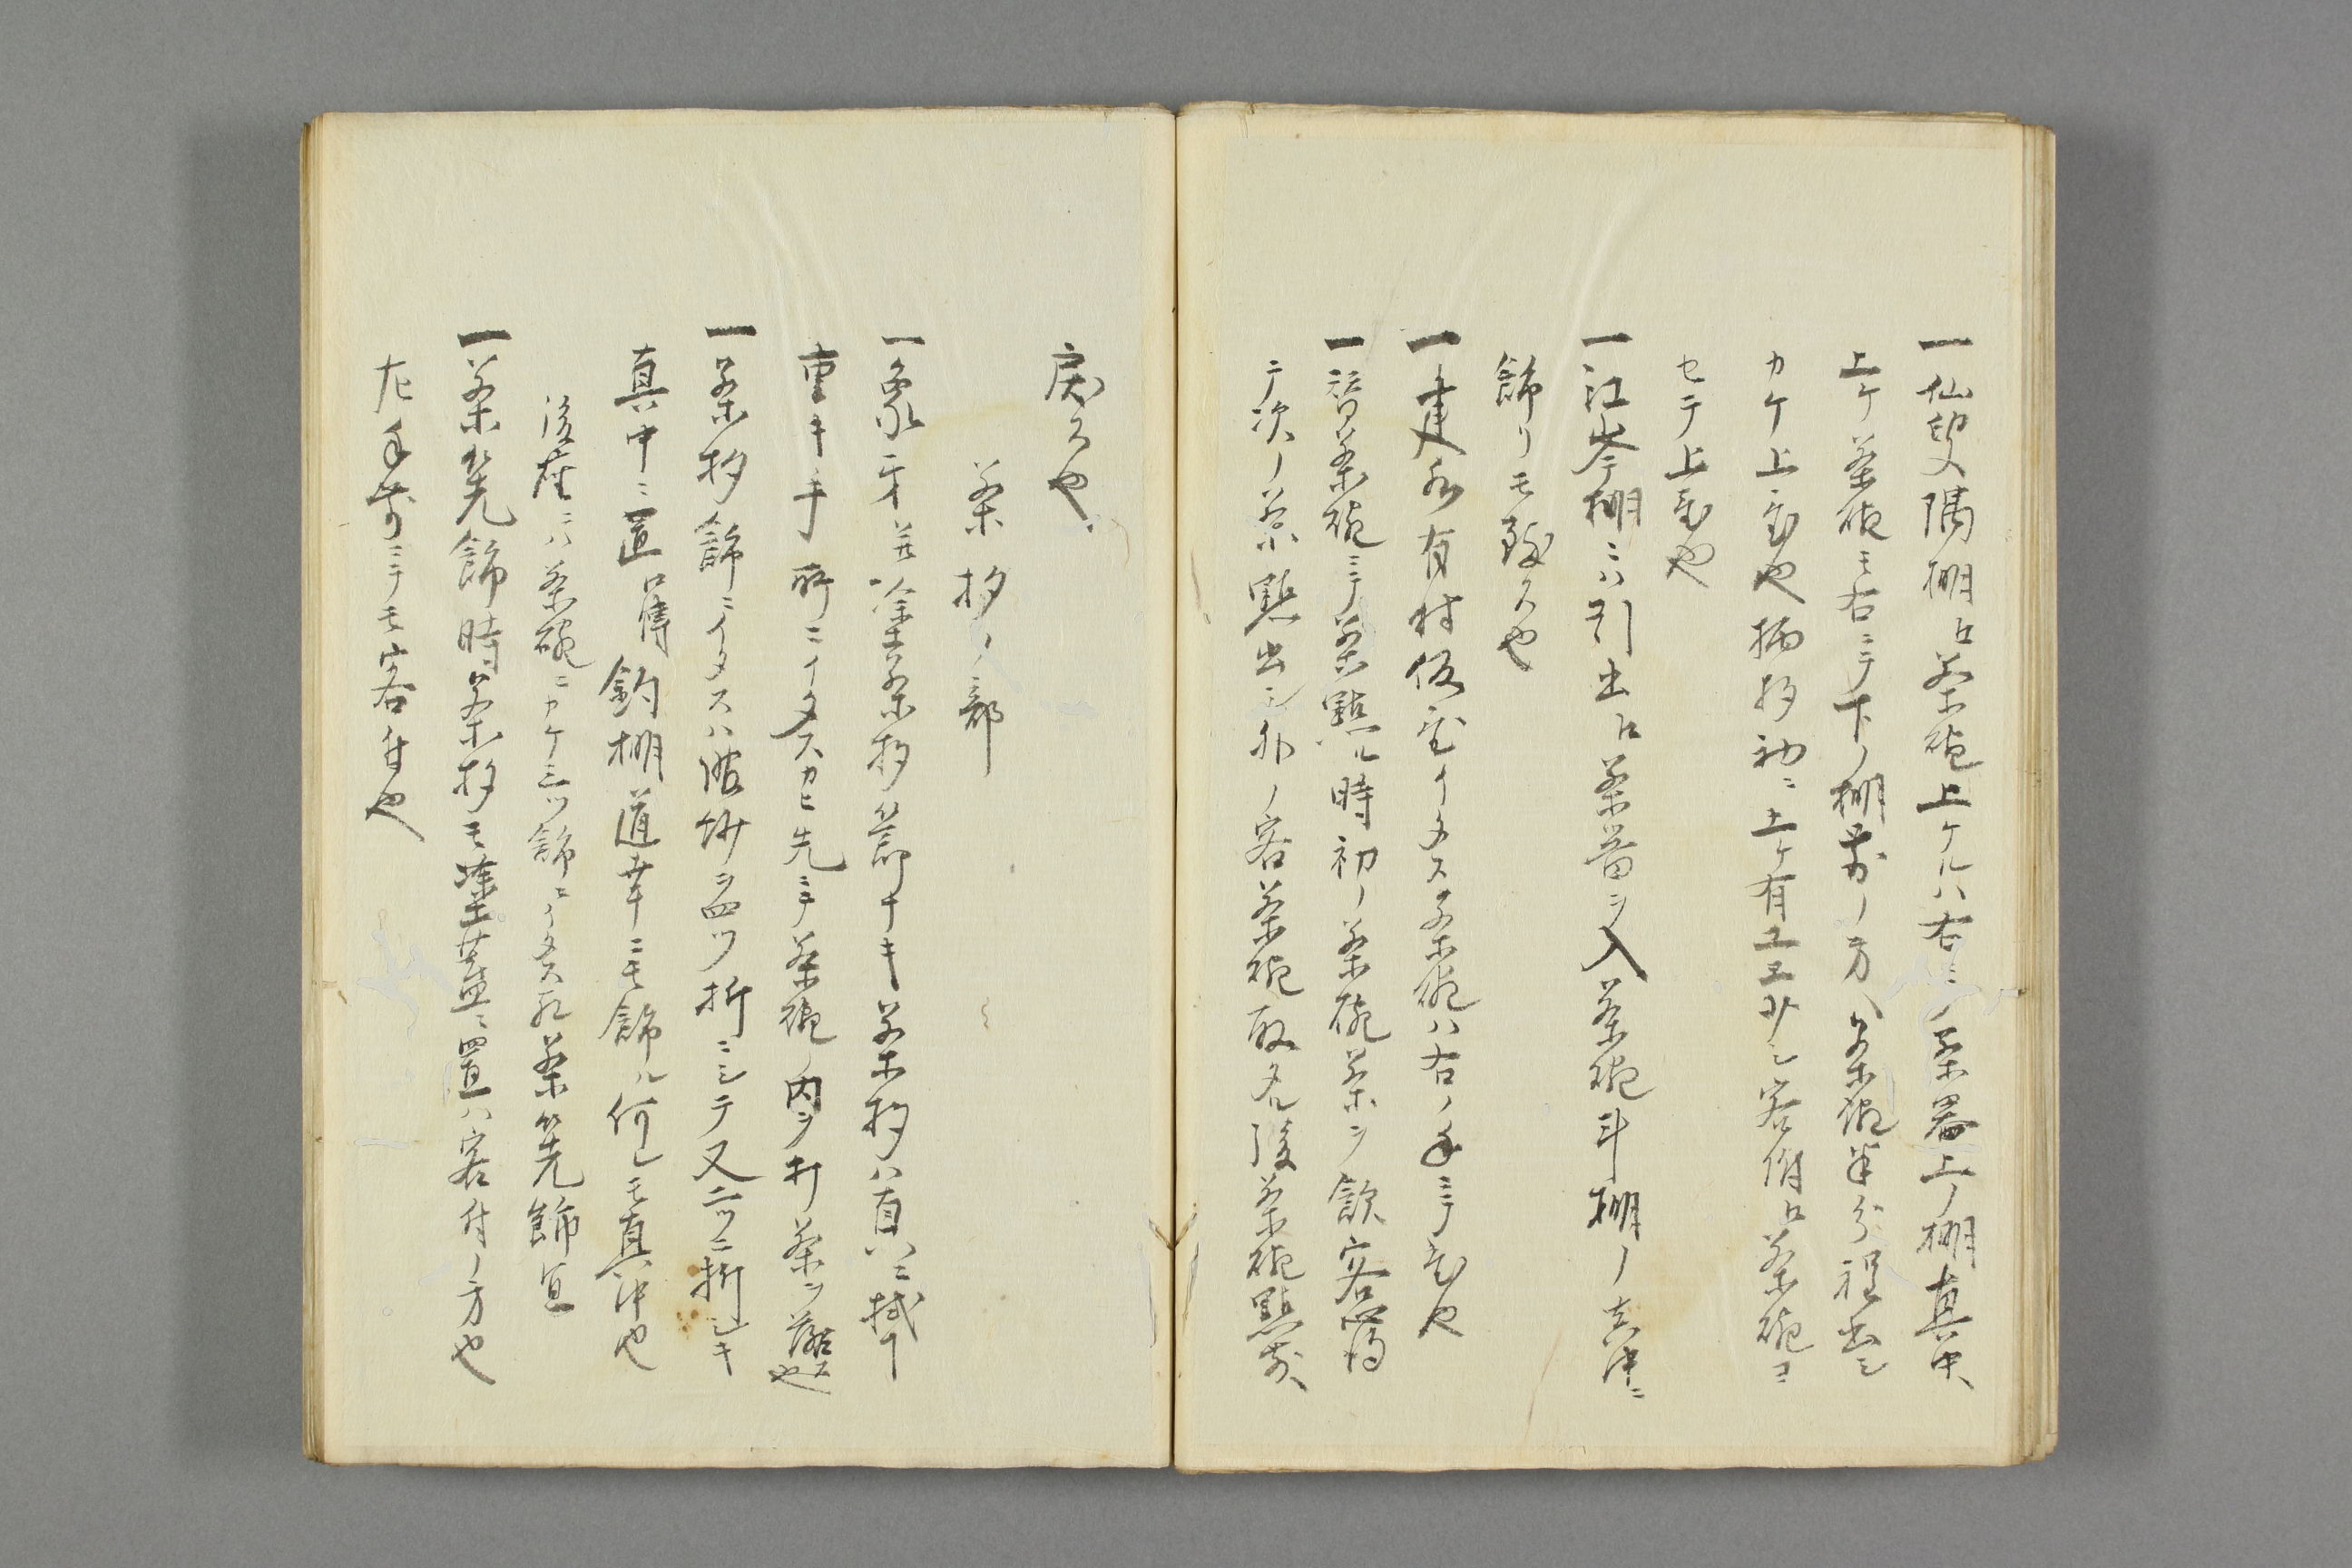 一仙叟隅棚ヘ茶碗上ケルハ右ニテ茶器上ノ棚真中ヘ
上ケ茶碗モ右ニテ下ノ棚前ノ方ヘ茶碗半分程出シ
カケ上置也柄杓初ニ上ケ有ユエ少シ客付ヘ茶碗ヨ
セテ上置也
一江岑棚ニハ引出ヘ茶器ヲ入茶碗斗棚ノ真中ニ
飾リモ致ス也
一建水有時仮置イタス茶碗ハ右ノ手ニテ置也
一替茶碗ニテ茶點ル時初ノ茶碗茶ヲ飲客
テ次ノ茶點出シ外ノ客茶碗取タル後茶碗點前ヘ
戻ス也
茶杓ノ部
一象牙并塗茶杓節ナキ茶杓ハ真ニ拭
重キ手所ニイタスカヒ先ニテ茶碗ノ内ヲ打茶ヲ落ス也
一茶杓飾ニイタスハ服紗ヲ四ツ折ニシテ又二ツニ折シキ
真中ニ置口傳釣棚道幸ニモ飾ル何レモ真中也
後座ニハ茶碗ニカケ三ツ飾ニイタス又茶筅飾宜
一茶筅飾時茶杓モ塗蓋ニ置ハ客付ノ方也
左手前ニテモ客付也